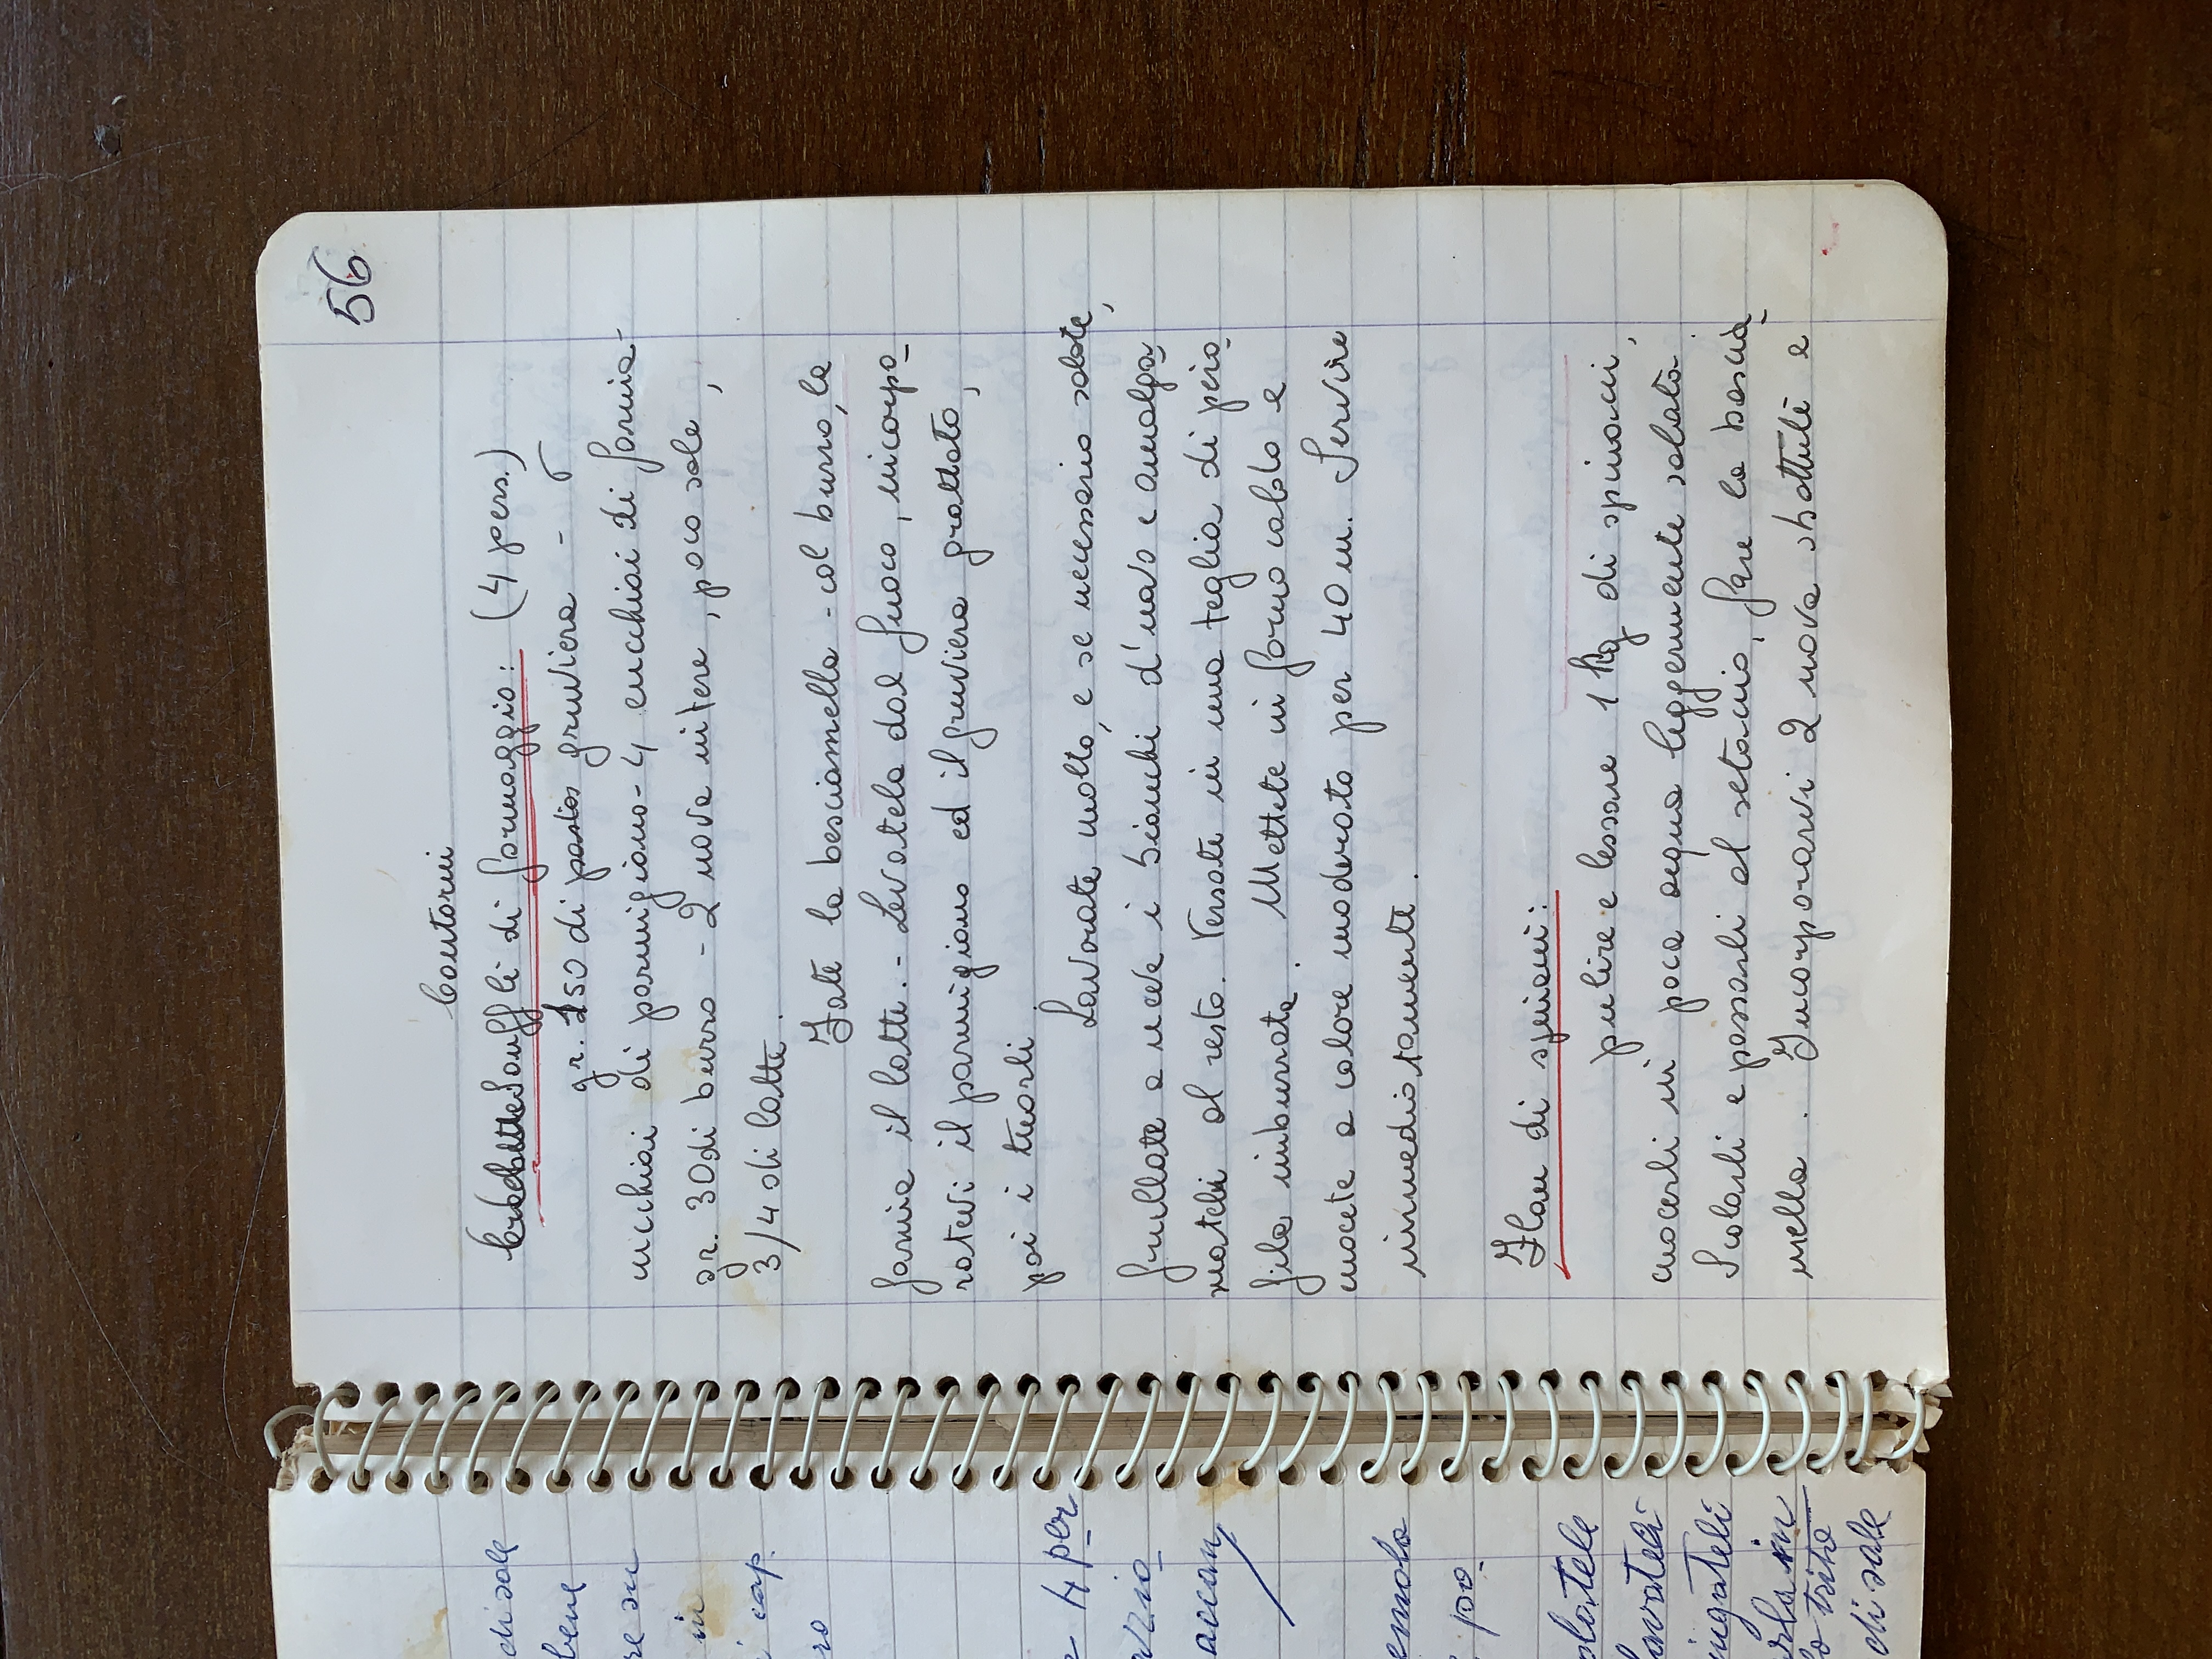 di sole
bene
re su
in
i cap.
ro
4 per
accan
emola
po-
olatele
lavateli
ingateli
rla in
lo trito
di sale
56
Contorni
Crochette Souffli di formaggio: (4 pers.)
gr. 150 di pasta gruviera - 5
cucchiai di parmigiano - 4 cucchiai di farina -
gr. 30 di burro - 2 uova intere, poco sale,
3/4 di latte.
Fate la besciamella - col burro, la
farina il latte. - Levatela dal fuoco, incorpo-
ratevi il parmigiano ed il gruviera grattato,
poi i tuorli.
Lavorate molto, e se necessario salate,
frullate a neve i bianchi d'uovo e amalga-
mateli al resto. Versate in una teglia di piro-
fila imburrata. Mettete in forno caldo e
cuocete a calore moderato per 40 m. Servire
immediatamente.
Flan di spinaci:
pulire e lessare 1 Kg di spinaci,
cuocerli in poca acqua leggermente salata.
Scolarli e passarli al setaccio, fare la bescia-
mella. Incorporarvi 2 uova sbattute e